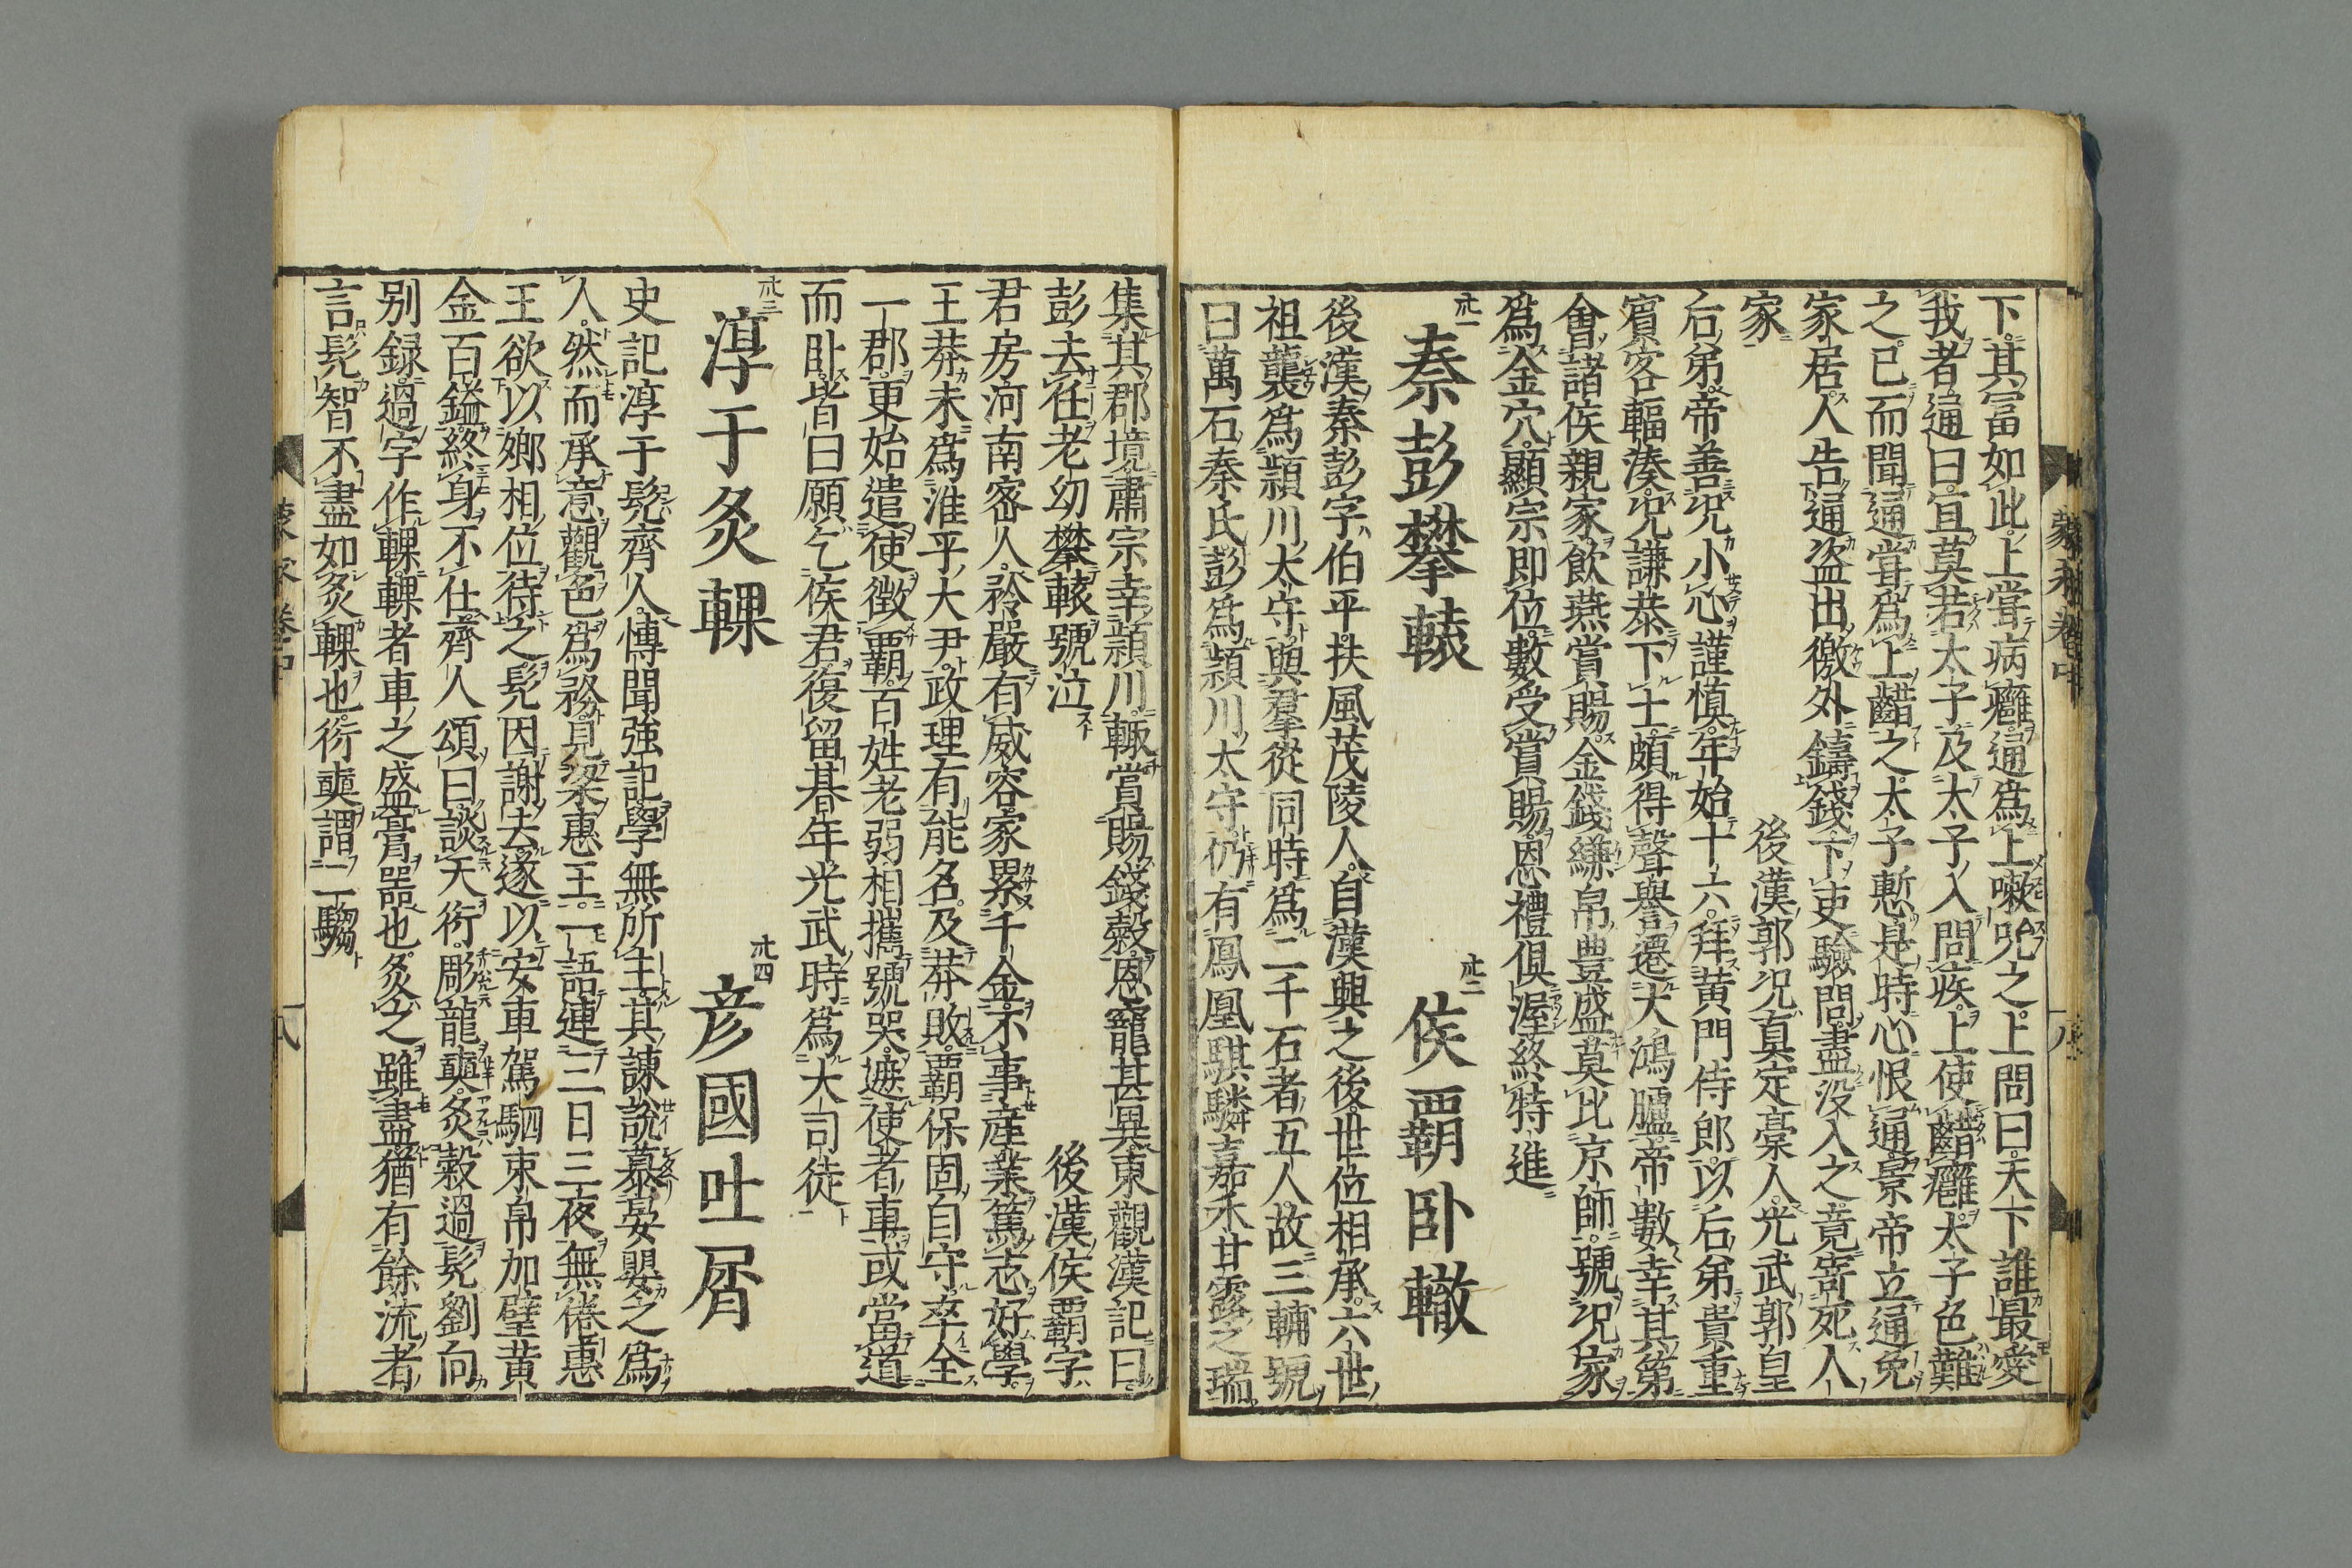 蒙求卷中
下其冨如此上甞病癰通爲上嗽吮之上問曰天下誰最愛
我者通曰宜莫若太子及太子入問疾上使齰癰太子色難
之已而聞通甞爲上齰之太子慙是時心恨通景帝立通免
家居人告通盗出徼外鑄錢下吏驗問盡没入之竟寄死人
家　後漢郭况真定稾人光武郭皇
后弟帝善况小心謹慎年始十六拜黄門侍郎以后弟貴重
賓客輻湊况謙恭下士頗得聲譽遷大鴻臚帝數幸其第
會諸侯親家飲燕賞賜金錢縑帛豊盛莫比京師號况家
爲金穴顯宗即位數受賞賜恩禮俱渥終特進
卅一 秦彭攀轅　卅二 侯覇卧轍
後漢秦彭字伯平扶風茂陵人自漢興之後世位相承六世
祖襲爲潁川太守與羣從同時爲二千石者五人故三輔號
曰萬石秦氏彭爲潁川太守仍有鳳凰騏驎嘉禾甘露之瑞
集其郡境肅宗幸潁川輙賞賜錢穀恩寵甚異東觀漢記曰
彭去任老幼攀轅號泣　後漢侯覇字
君房河南密人矜嚴有威容家累千金不事産業篤志好學
王莽末爲淮平大尹政理有能名及莽敗覇保固自守卒全
一郡更始遣使徴覇百姓老弱相攜號哭遮使者車或當道
而卧皆曰願乞侯君復留朞年光武時爲大司徒
卅三 淳于炙輠　卅四 彦國吐屑
史記淳于髠齊人慱聞強記學無所主其諫説慕晏嬰之爲
人然而承意觀色爲務見梁惠王一語連三日三夜無倦惠
王欲以郷相位待之髠因謝去遂以安車駕駟束帛加璧黄
金百鎰終身不仕齊人頌曰談天衍彫龍奭炙轂過髠劉向
別録過字作輠輠者車之盛膏噐也炙之雖盡猶有餘流者
言髠智不盡如炙輠也衍奭謂二騶
蒙求卷中　八